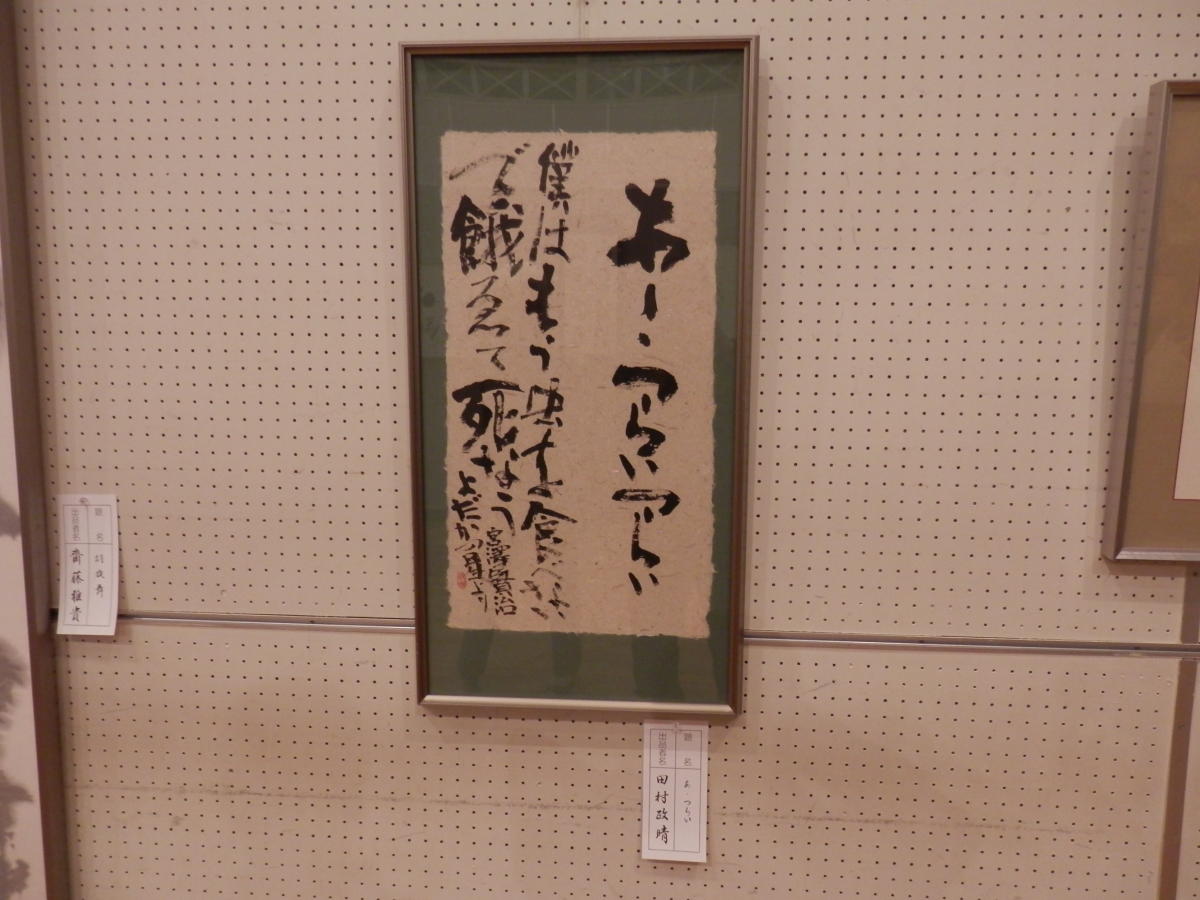 あーつらいつらい
僕はもう虫を食べない
で餓ゑて死なう
宮澤賢治
よだかの星より
題名 あ・つらい
出品者名 田村政晴
題名
出品者名 齋藤雅貴